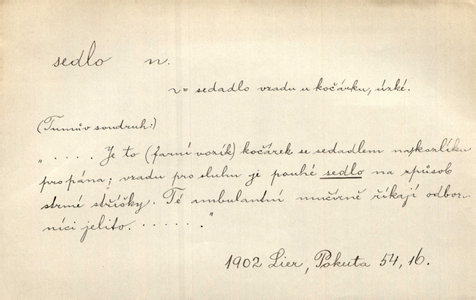 sedlo n.
~ sedadlo vzadu u kočárku, úzké.
(Tumův soudruh:)
". . . . Je to (farní vozík) kočárek se sedadlem na kozlíku
pro pána; vzadu pro sluhu je pouhé sedlo na způsob
strmé stříšky. Té ambulantní mučírně říkají odbor-
níci jelito. . . . . . ."
1902 Lier, Pokuta 54, 16.